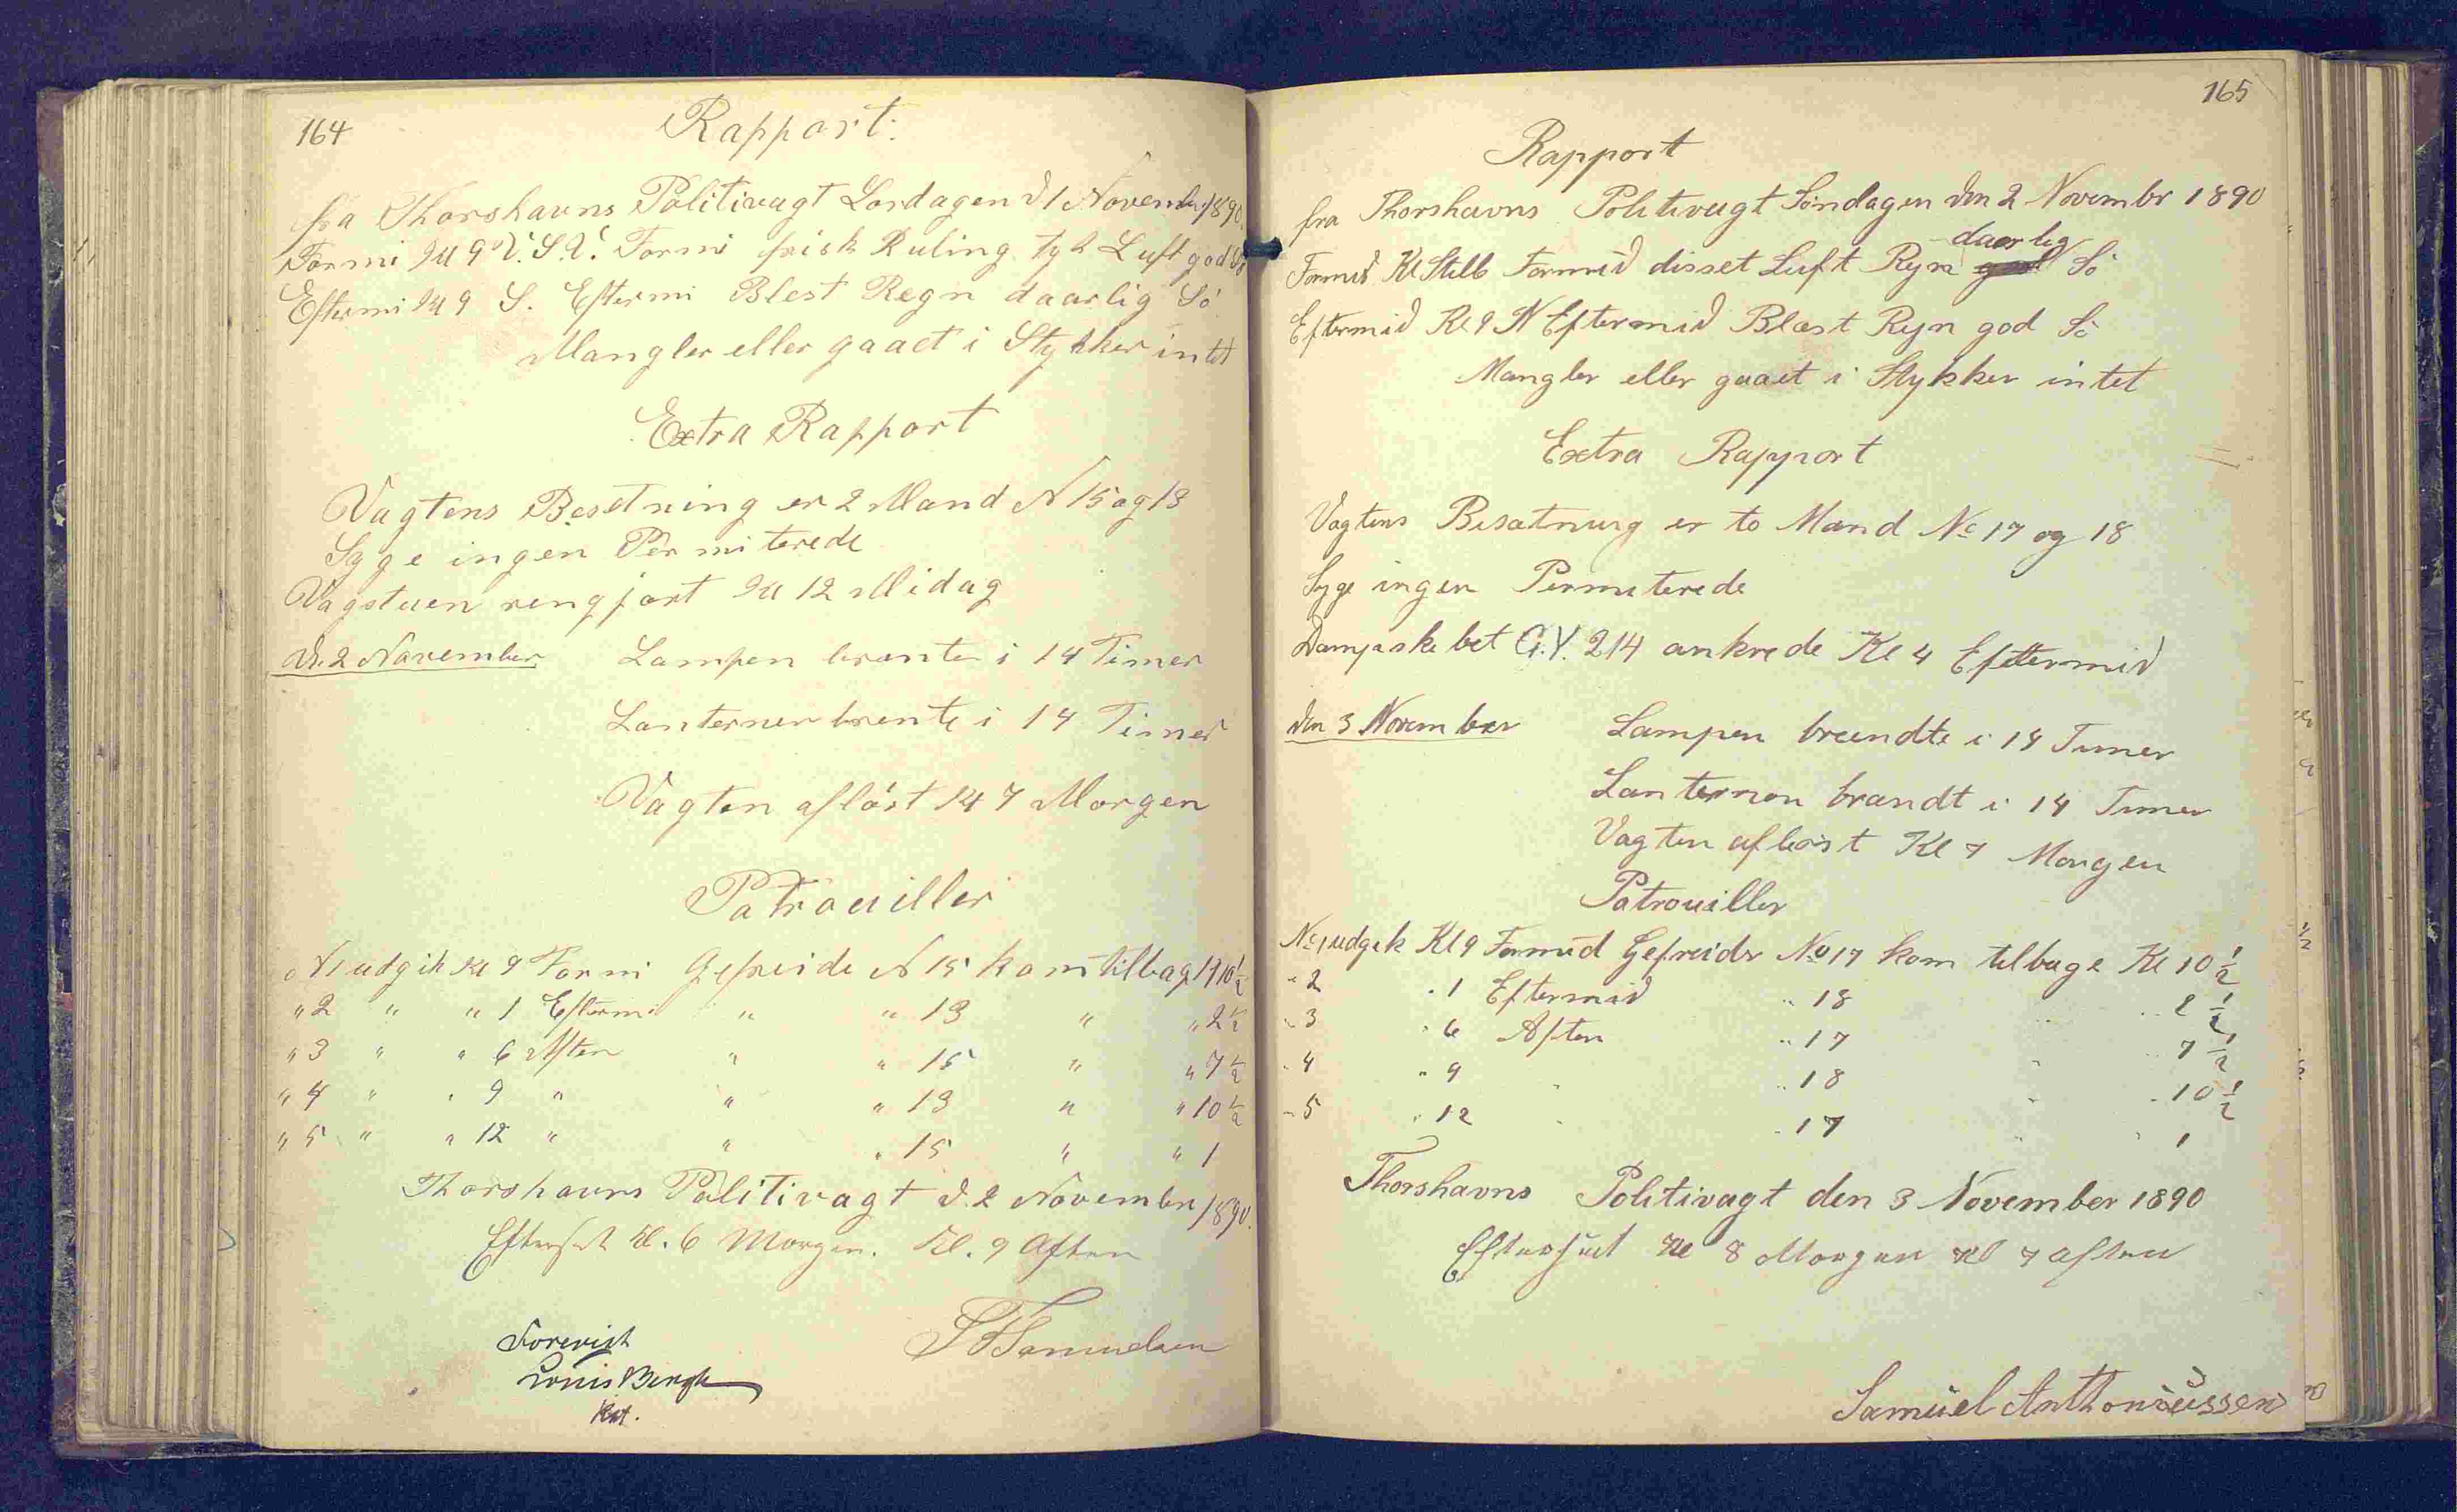 164
Rapport.
fra Thorshavns Politivagt Lordagen d 1 November 1890.
Formi Kl 9 V.S.V. Formi frisk Kuling tyk Luft god Sö
Eftermi Kl 9 S. Eftermi Blest Regn daarlig Sö
Mangler eller gaaet i Stykker intet
Extra Rapport
Vagtens Besetning er 2 Mand N 15 og 13
Syge ingen Permiterede
Vagstuen rengjort Kl 12 Midag
d. 2 November Lampen brente i 14 Timer
Lanterner brente i 14 Timer
Vagten aflöst Kl 7 Morgen
Patrouiller
N 1 udgik Kl 9 Formi Gefreide N 15 kom tilbag Kl 10 1/2
" 2 " " 1 Eftermi " " 13 " " 2 1/2
" 3 " " 6 Aften " " 15 " " 7 1/2
" 4 " " 9 " " " 13 " " 10 1/2
" 5 " " 12 " " " 15 " " 1
Thorshavns Politivagt d. 2 November 1890.
Efterset Kl. 6 Morgen. Kl. 9 Aften
Forevist
Louis Bergh
Kst.
Samuelsen
165
Rapport
fra Thorshavns Politivagt Söndagen den 2 Novembr 1890
Formid Kl Stille Formid disset Luft Rejn god daarlig Sö
Eftermid Kl 9 N Eftermid Blæst Rejn god Sö
Mangler eller gaaet i Stykker intet
Extra Rapport
Vagtens Besatning er to Mand No 17 og 18
Syge ingen Permiterede
Dampskibet G.Y. 214 ankrede Kl 4 Eftermid
den 3 November Lampen brændte i 14 Timer
Lanternen brændt i 14 Timer
Vagten aflöst Kl 7 Morgen
Patrouiller
No 1 udgik Kl 9 Formid Gefreider No 17 kom tilbage Kl 10 1/2
" 2 " 1 Eftermid " 18 " 2 1/2
" 3 " 6 Aften " 17 " " 7 1/2
" 4 " 9 " " 18 " " 10 1/2
" 5 " 12 " " 17 " " 1
Thorshavns Politivagt den 3 November 1890
Efterset Kl 8 Morgen Kl 7 Aften
Samuel Anthoniussen